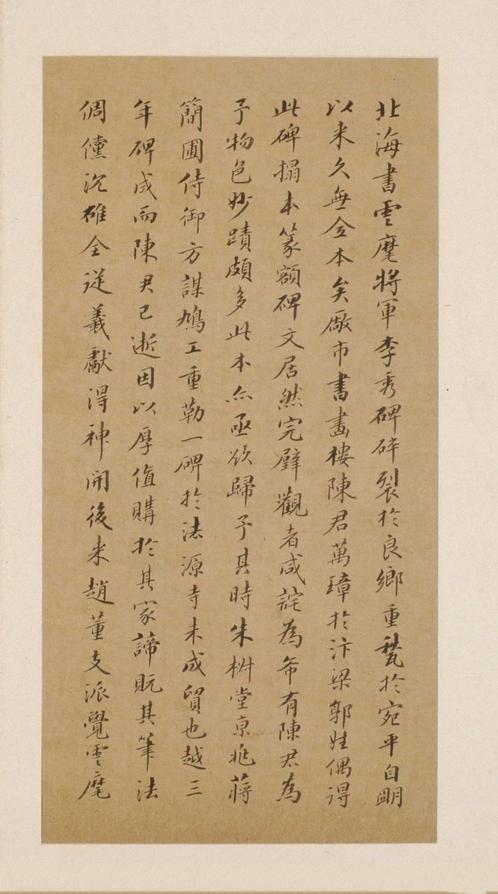 北海書雲麾將軍李秀碑碎裂於良鄉重甃於宛平自明
以来久無全本矣廠市書畫樓陳君萬璋於汴梁郭姓偶得
此碑搨本篆額碑文居然完璧觀者咸詫為希有陳君為
予物色妙蹟頗多此本亦亟欲歸予其時朱椒堂京兆蔣
簡圃侍御方謀鳩工重勒一碑於法源寺未成貿也越三
年碑成而陳君已逝因以厚值購於其家諦玩其筆法
倜儻沉雄全從羲獻得神開後来趙董支派覺雲麾